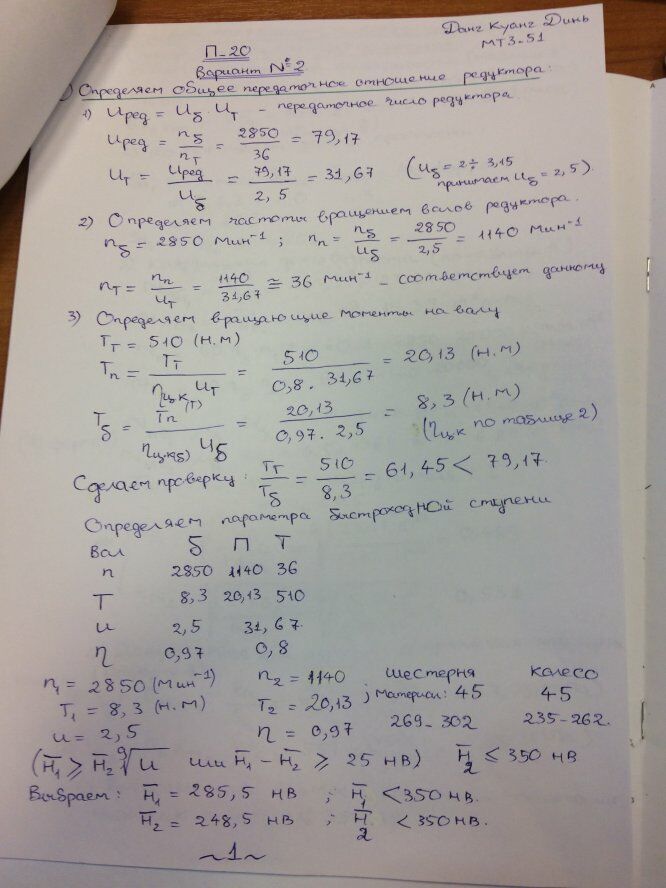 Данг Куанг Динь
МТ3-51
П-20
Вариант №2
Определяем общее передаточное отношение редуктора:
1) Uред = Uб · Uт - передаточное число редуктора
Uред = nб/nт = 2850/36 = 79,17
Uт = Uред/Uб = 79,17/2,5 = 31,67 (Uб = 2 ÷ 3,15
принимаем Uб = 2,5).
2) Определяем частоты вращением валов редуктора.
nб = 2850 мин⁻¹ ; nп = nб/Uб = 2850/2,5 = 1140 мин⁻¹
nт = nп/Uт = 1140/31,67 ≅ 36 мин⁻¹ - соответствует данному
3) Определяем вращающие моменты на валу
Tт = 510 (н.м)
Tп = Tт/(ηцк(т) Uт) = 510/(0,8 · 31,67) = 20,13 (н.м)
Tб = Tп/(ηцк(б) Uб) = 20,13/(0,97 · 2,5) = 8,3 (н.м)
(ηцк по таблице 2)
Сделаем проверку: Tт/Tб = 510/8,3 = 61,45 < 79,17.
Определяем параметра быстроходной ступени
Вал Б П Т
n 2850 1140 36
T 8,3 20,13 510
u 2,5 31,67.
η 0,97 0,8
n₁ = 2850 (мин⁻¹) n₂ = 1140 шестерня колесо
T₁ = 8,3 (н.м) T₂ = 20,13 ; материал: 45 45
u = 2,5 η = 0,97 269-302 235-262.
(H̅₁ ⩾ H̅₂ ⁹√u или H̅₁ - H̅₂ ⩾ 25 нв) H̅₂ ≤ 350 нв
Выбраем: H̅₁ = 285,5 нв ; H̅₁ < 350 нв.
H̅₂ = 248,5 нв ; H̅₂ < 350 нв.
~1~